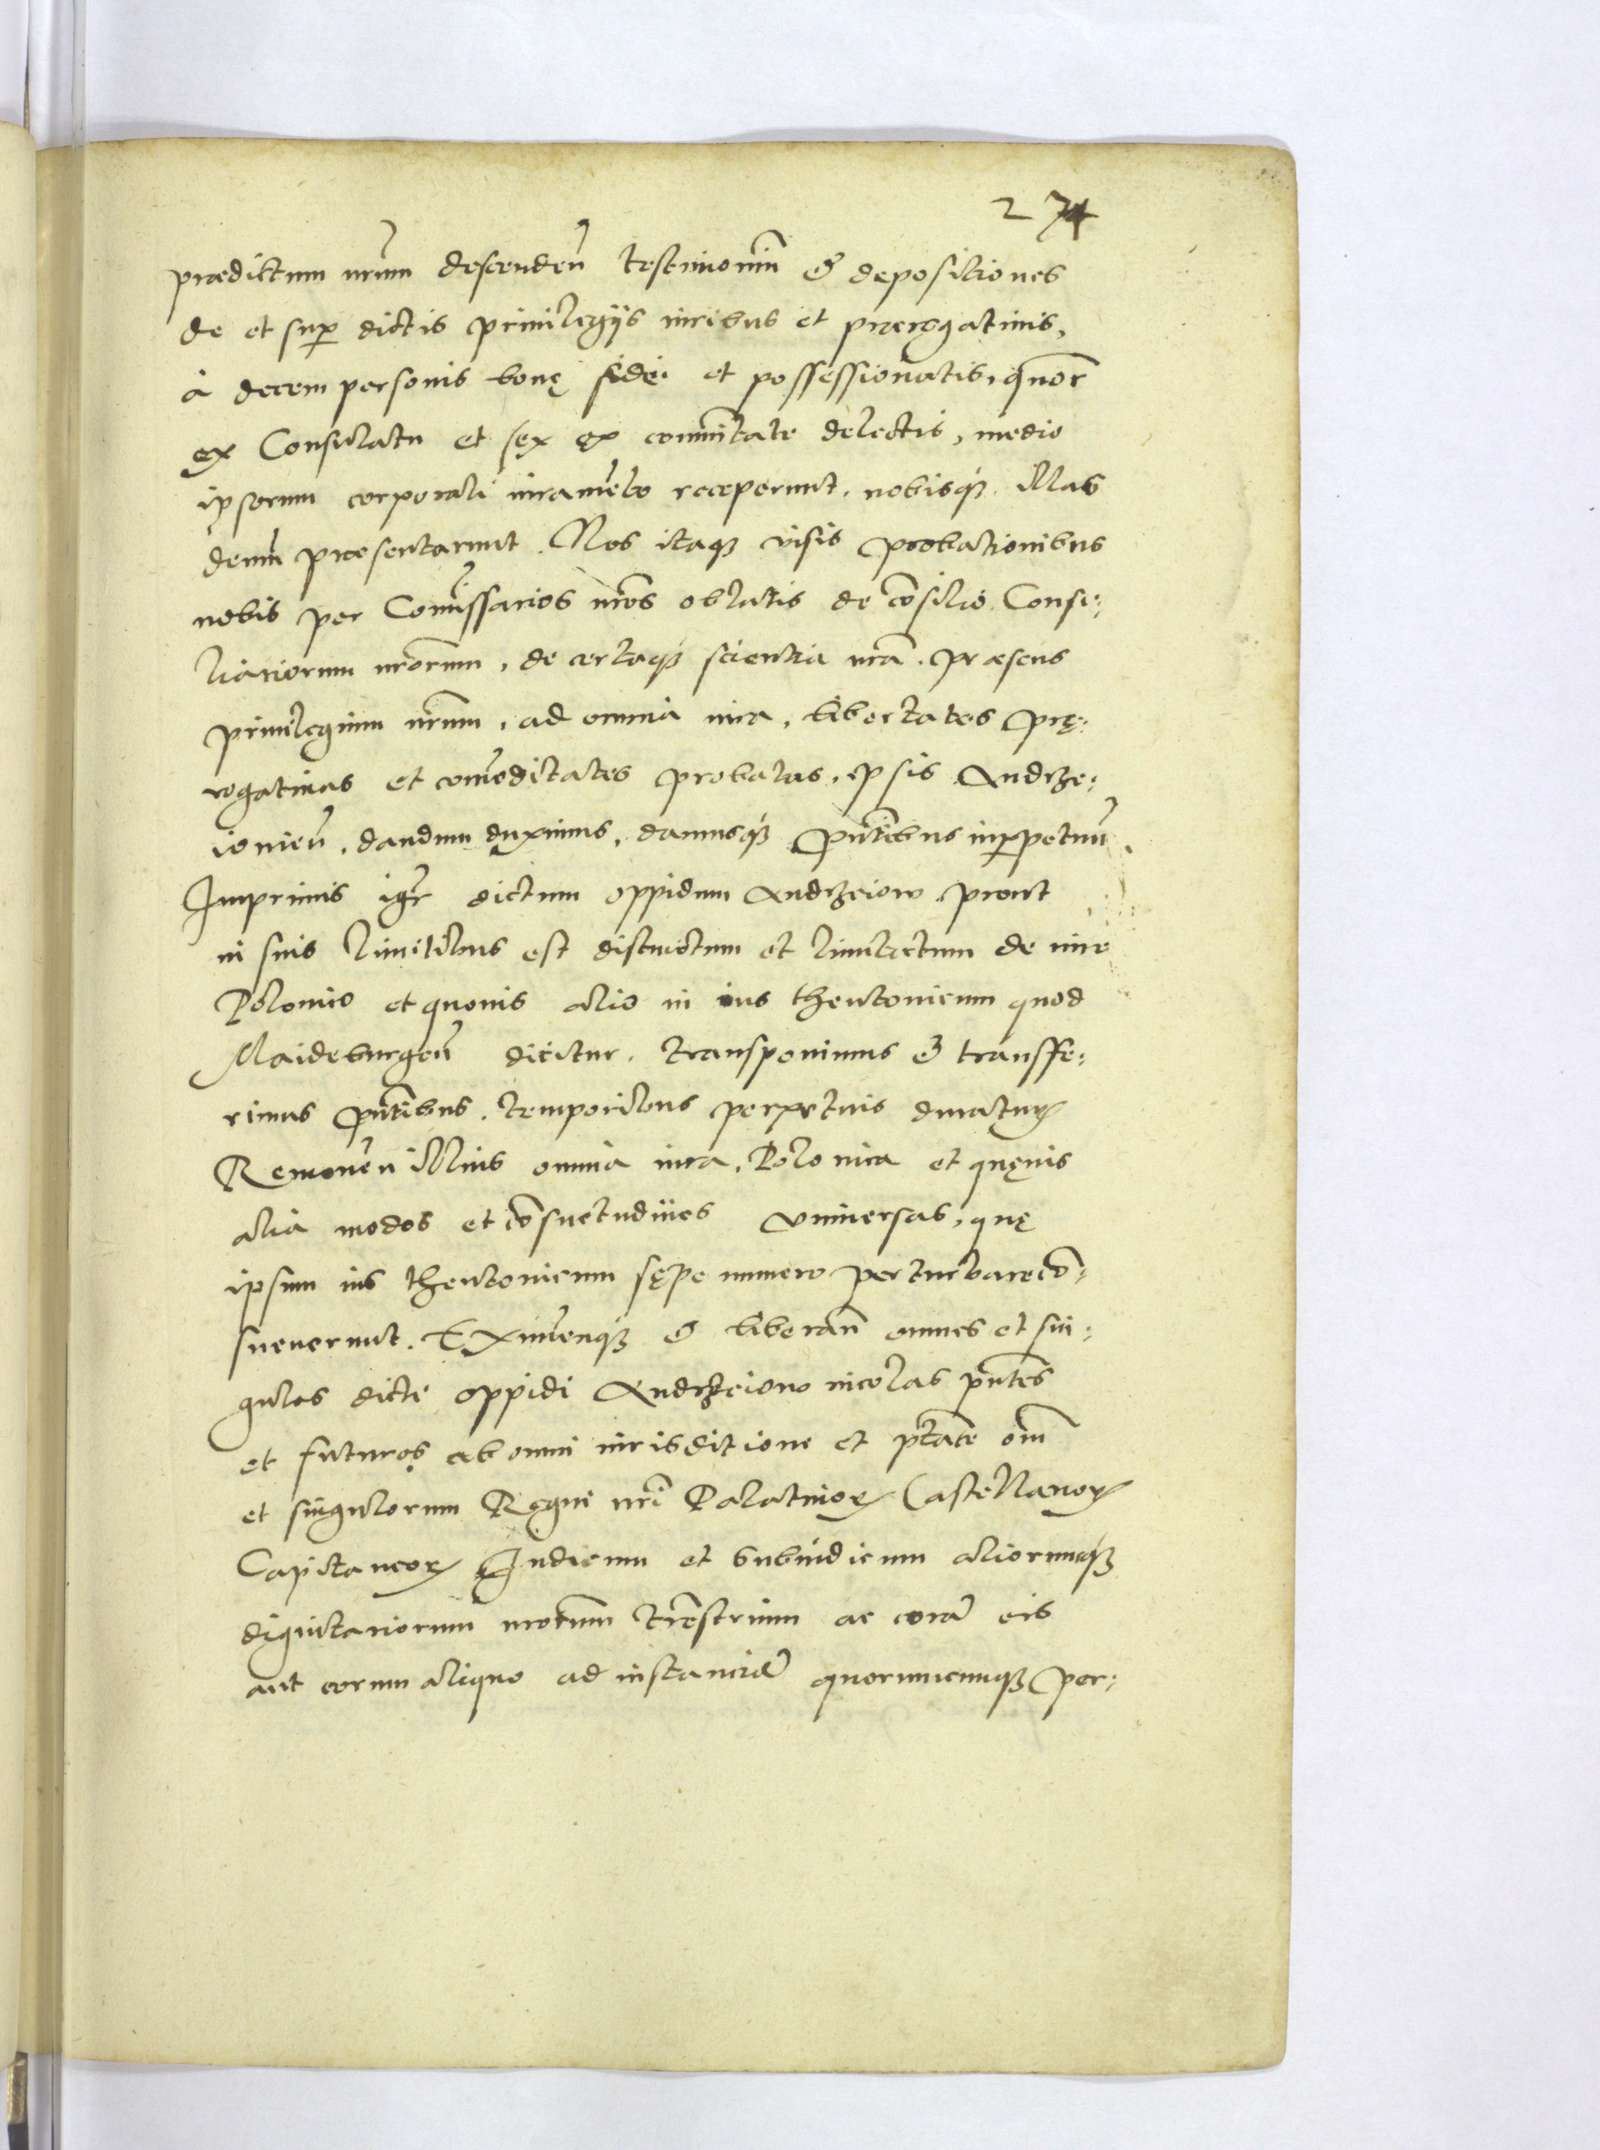 274
prædictum nrum descenden̄ testimoniū & depositiones
de et sup dictis priuilegijs iuribus et prærogatiuis,
à decem personis bonę fidei et possessionatis, quatuor
ex Consulatu et sex ex comunitate delectis, medio
ipsorum corporali iuramēto receperunt, nobisq; illas
demū præsentarunt. Nos itaq; visis probationibus
nobis per Comissarios nros oblatis de cōsilio Consi:
liariorum nrorum, de certaq; scientia nrā. præsens
priuilegium nrum, ad omnia iura, libertates prę:
rogatiuas et comoditates probatas, ipsis Andrze:
iouien̄, dandum duximus, damusq; pntibus inperpetuū.
Imprimis igr dictum oppidum Andrzeiow prout
in suis limitibus est distinctum et limitatum de iure
Polonico et quouis alio in ius theutonicum quod
Maideburgen̄ dicitur, transponimus & transffe:
rimus pntibus, temporibus perpetuis duratur
Remouen illius omnia iura, Polonica et quęuis
alia modos et cōsuetudines vniuersas, quę
ipsum ius theutonicum sępe numero perturbare cō:
sueuerunt. Eximenq; & liberan̄ omnes et sin:
gulos dicti oppidi Andrzeiow incolas pntes
et futuros ab omni iurisditione et ptate oīm
et singulorum Regni nri Palatinor Castellanor
Capitaneor Iudicum et Subiudicum aliorumq;
dignitariorum nrorum trestrium ac corā eis
aut eorum aliquo ad instanciā quorumcunq; per: